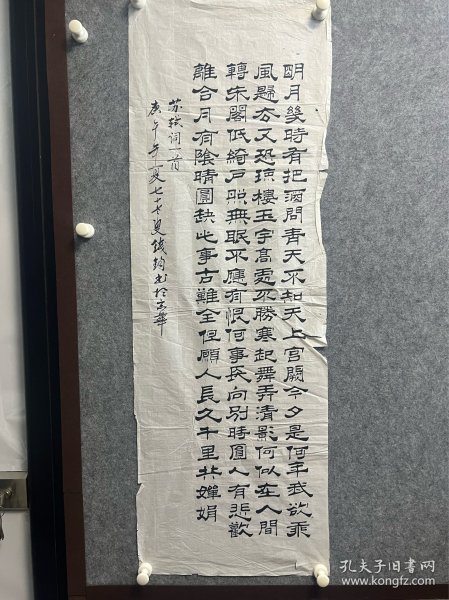 明月幾時有把酒問青天不知天上宮闕今夕是何年我欲乘
風歸去又恐琼樓玉宇高處不勝寒起舞弄清影何似在人間
轉朱閣低綺戶照無眠不應有恨何事長向別時圓人有悲歡
離合月有陰晴圓缺此事古難全但願人長久千里共嬋娟
苏轼词一首
庚午年夏七十叟
孔夫子旧书网
www.kongfz.com